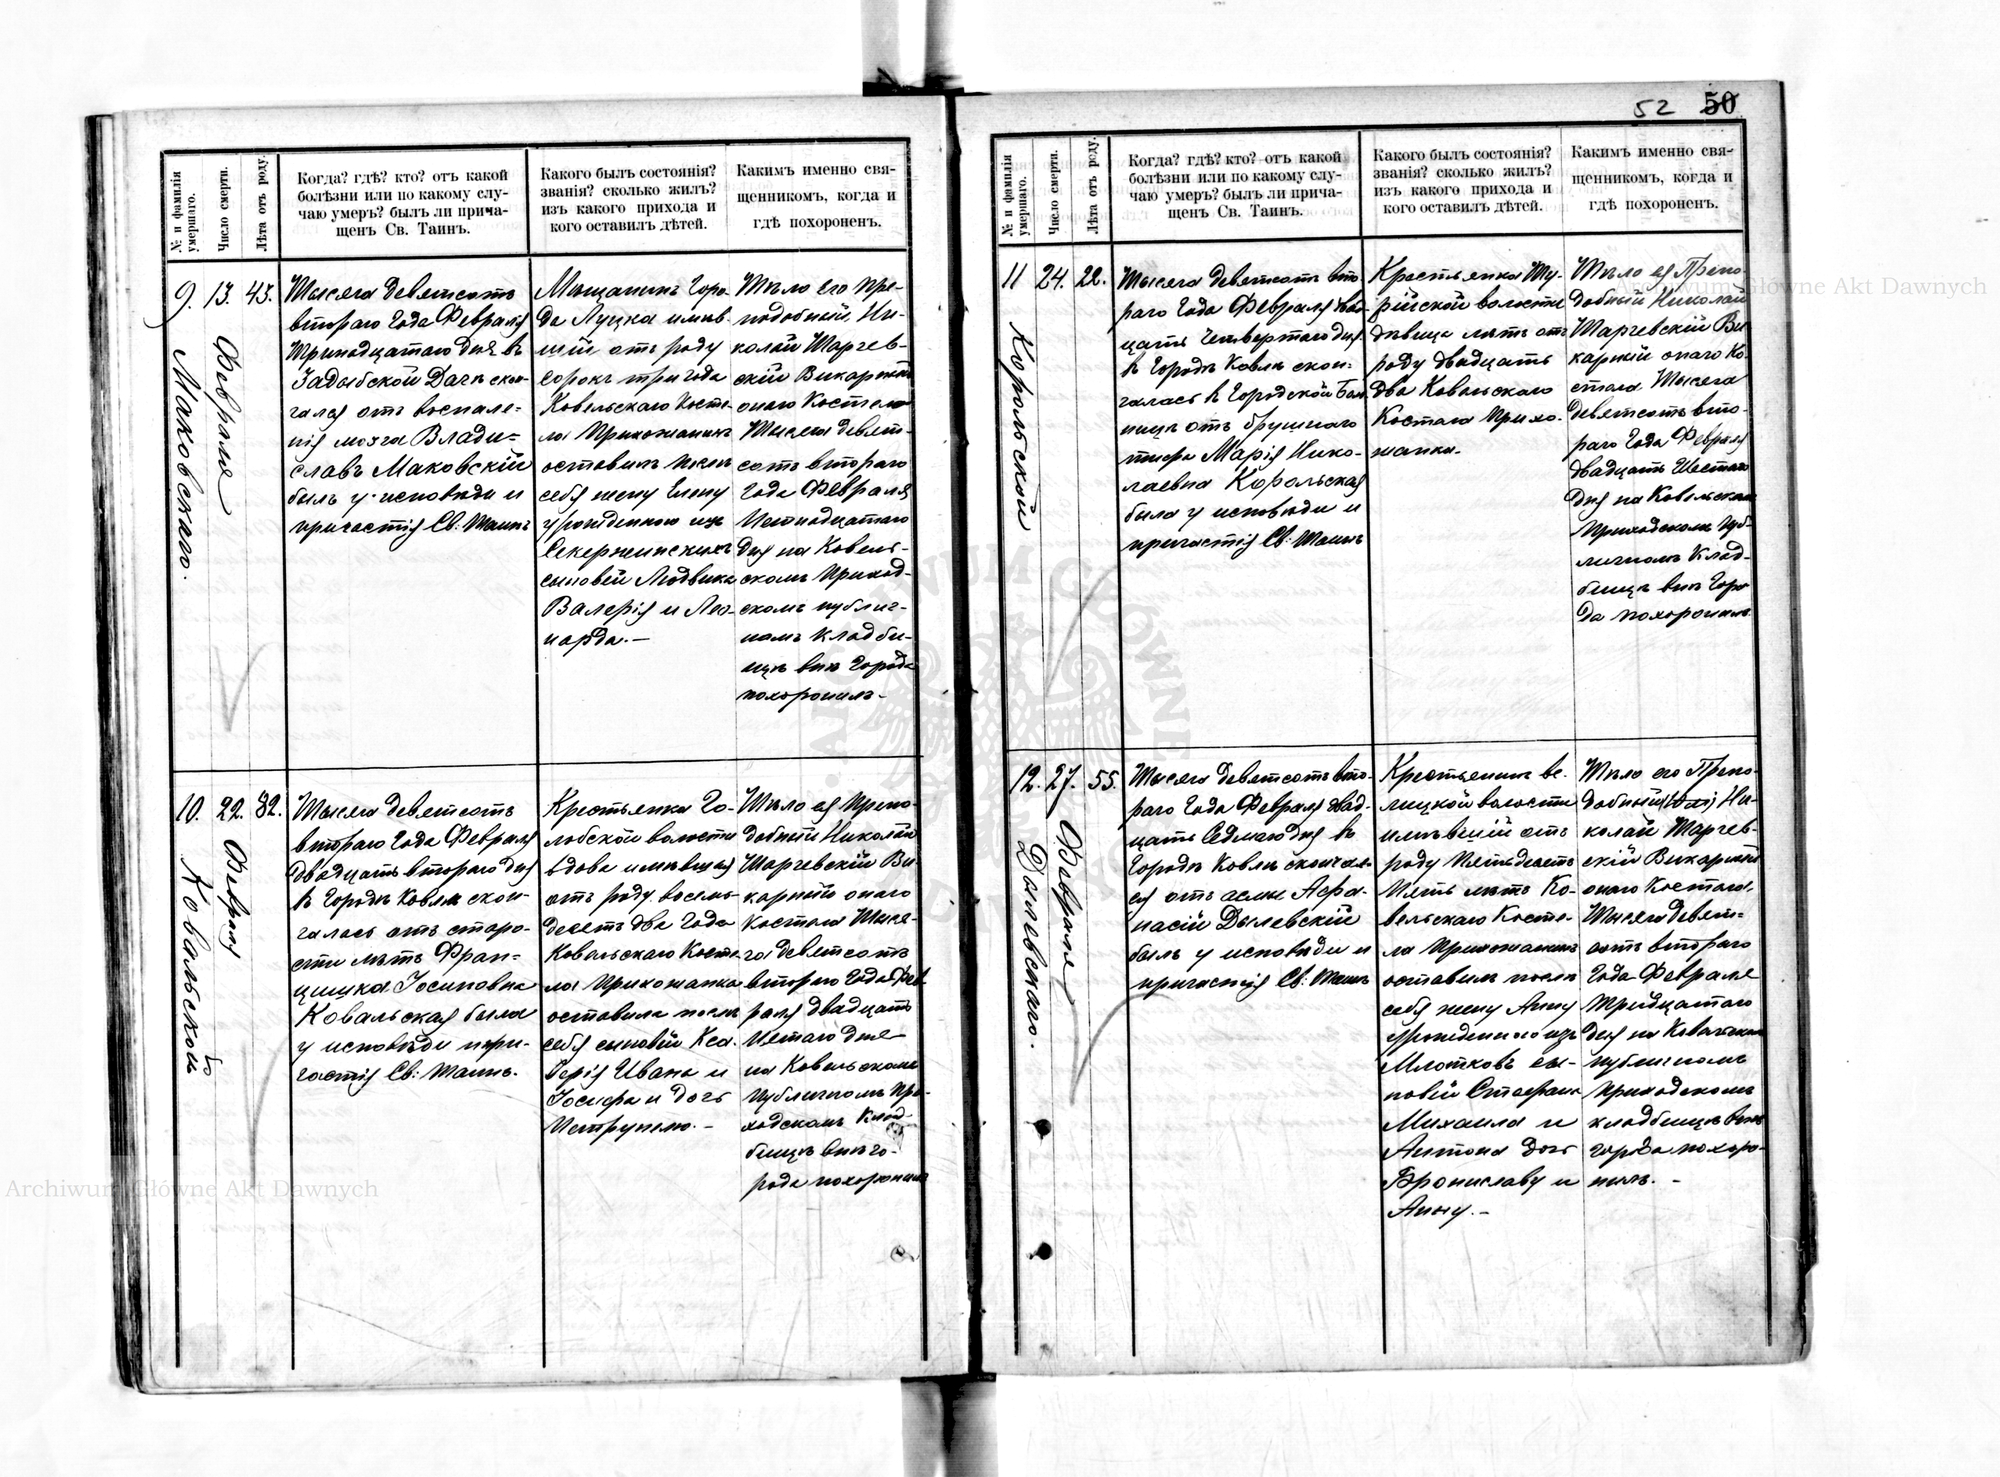 52 50
№ и фамилія умершаго.
Число смерти.
Лѣта отъ роду.
Когда? гдѣ? кто? отъ какой
болѣзни или по какому слу-
чаю умеръ? былъ ли прича-
щенъ Св. Таинъ.
Какого былъ состоянія?
званія? сколько жилъ?
изъ какого прихода и
кого оставилъ дѣтей.
Какимъ именно свя-
щенникомъ, когда и
гдѣ похороненъ.
9.
Маковскаго.
13.
Февраля
43.
Тысяча девятсотъ
втораго Года Февраля
Тринадцатаго дня въ
Задыбской Дачѣ скон-
чался отъ воспале-
нія мозга Влади-
славъ Маковскій
былъ у исповѣди и
причастія Св: Таинъ
Мѣщанинъ Горо-
да Луцка имѣв-
шій отъ роду
сорокъ три года
Ковельскаго Косте-
ла Прихожанинъ
оставилъ послѣ
себя жену Елену
урожденную изъ
сыновей Людвика
Валерія и Лео-
нарда.—
Тѣло его Пре-
подобный Ни-
колай Шаргев-
скій Викарный
онаго Костела
Тысяча девят-
сотъ втораго
Года Февраля
Пятнадцатаго
дня на Ковель-
скомъ Приход-
скомъ публич-
номъ кладби-
щѣ внѣ Города
похоронилъ.-
10.
Ковальской
22.
Февраля
82.
Тысяча девятсотъ
втораго Года Февраля
двадцать втораго дня
въ Городѣ Ковлѣ скон-
чалась отъ старо-
сти лѣтъ Фран-
цишка Іосиповна
Ковальская была
у исповѣди и при-
частія Св: Таинъ.
Крестьянка Го-
лобской волости
вдова имѣвшая
отъ роду восемь-
десятъ два Года
Ковельскаго Косте-
ла Прихожанка
оставила послѣ
себя сыновей Кса-
верія Ивана и
Іосифа и дочь
Петрунелю.-
Тѣло ея Препо-
добный Николай
Шаргевскій Ви-
карный онаго
Костела Тыся-
ча девятсотъ
втораго Года Фев-
раля двадцать
Пятаго дня
на Ковельскомъ
Публичномъ При-
ходскомъ Клад-
бищѣ внѣ го-
рода похоронилъ
№ и фамилія умершаго.
Число смерти.
Лѣта отъ роду.
Когда? гдѣ? кто? отъ какой
болѣзни или по какому слу-
чаю умеръ? былъ ли прича-
щенъ Св. Таинъ.
Какого былъ состоянія?
званія? сколько жилъ?
изъ какого прихода и
кого оставилъ дѣтей.
Какимъ именно свя-
щенникомъ, когда и
гдѣ похороненъ.
11
Корольской
24.
22.
Тысяча девятсотъ вто-
раго Года Февраля двад-
цать Четвертаго дня
въ Городѣ Ковлѣ скон-
чалась въ Городской Боль-
ницѣ отъ брушнаго
тифа Марія Нико-
лаевна Корольская
была у исповѣди и
причастія Св: Таинъ
Крестьянка Ту-
рійской волости
дѣвица лѣтъ отъ
роду двадцать
два Ковельскаго
Костела Прихо-
жанка.
Тѣло ея Препо-
добный Николай
Шаргевскій Ви-
карный онаго Ко-
стела Тысяча
девятсотъ вто-
раго Года Февраля
двадцать Шестаго
дня на Ковельскомъ
Приходскомъ Пуб-
личномъ Клад-
бищѣ внѣ Горо-
да похоронилъ
12.
Дылевскаго.
27.
Февраля
55.
Тысяча девятсотъ вто-
раго Года Февраля двад-
цать Седмаго дня въ
Городѣ Ковлѣ скончал-
ся отъ астмы Афа-
насій Дылевскій
былъ у исповѣди и
причастія Св: Таинъ
Крестьянинъ ве-
лицкой волости
имѣвшій отъ
роду Пятьдесятъ
Пять лѣтъ Ко-
вельскаго Косте-
ла Прихожанинъ
оставилъ послѣ
себя жену Анну
урожденную изъ
Млотковъ сы-
новей Стефана
Михаила и
Антона дочь
Брониславу и
Анну.-
Тѣло его Препо-
добный Ни-
колай Шаргев-
скій Викарный
онаго Костела
Тысяча девят-
сотъ втораго
Года Февраля
Тридцатаго
дня на Ковельскомъ
публичномъ
Приходскомъ
кладбищѣ внѣ
города похоро-
нилъ. -
Archiwum Główne Akt Dawnych
Archiwum Główne Akt Dawnych